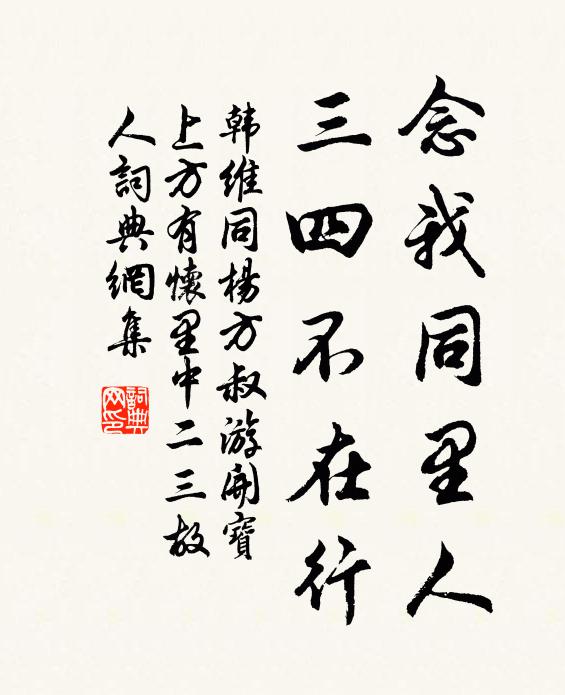 念我同里人
三四不在行
韩維同楊方叔游開寶
上方有懷里中二三故
人詞典網集
詞典网印